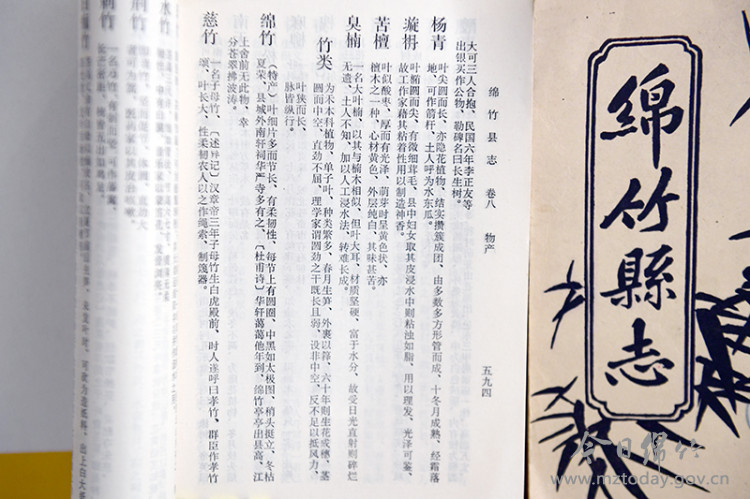 绵竹县志 卷八 物产
五九四
大可三人合抱、民国六年李正友等
出银买作公物、勒碑名曰长生树。
杨青
叶尖圆而长、亦隐花植物、结实攒族成团、由多数多方形管而成、十冬月成熟、经霜落
地、可作箭杆、土人呼为水东瓜。
漩枬
叶椭圆而尖、有微细茸毛、县中妇女取其皮浸水中则粘浊如脂、用以理发、光泽可鉴、
故工作家藉其粘着性用以制造神香。
苦檀
叶似酸枣、厚而有光泽、萌芽时呈黄色状、亦
檀木之一种、心材黄色、外层纯白、其味甚苦。
臭楠
一名大叶楠、以其与楠木相似、但叶大耳、材质坚硬、富于水分、故受日光直射则碎烂
无遗、土人不知、加以人工浸水法、转难长成。
竹类
为禾本科植物、单子叶、种类繁多、春月生笋、外裹以箨、六十年则生花成穗、茎
圆而中空、直劲不屈、理学家谓圆劲之干既长且弱、设非中空、反不足以抵风力、
叶狭而长、
脉皆纵行。
绵竹
（特产）叶细片多而节长、有柔韧性、每节上有圆圈、中黑如太极图、稍头挺立、冬枯
夏荣、县城外南轩祠华严寺多有之、〔杜甫诗〕华轩蔼蔼他年到、绵竹亭亭出县高、江
上舍前无此物、幸
分苍翠拂波涛。
慈竹
一名子母竹、〔述异记〕汉章帝三年子母竹生白虎殿前、时人遂呼曰孝竹、群臣作孝竹
颂、叶长大、性柔韧农人以之作绳索、制篾器。
荆竹
绵竹縣志
今日绵竹
www.mztoday.gov.cn